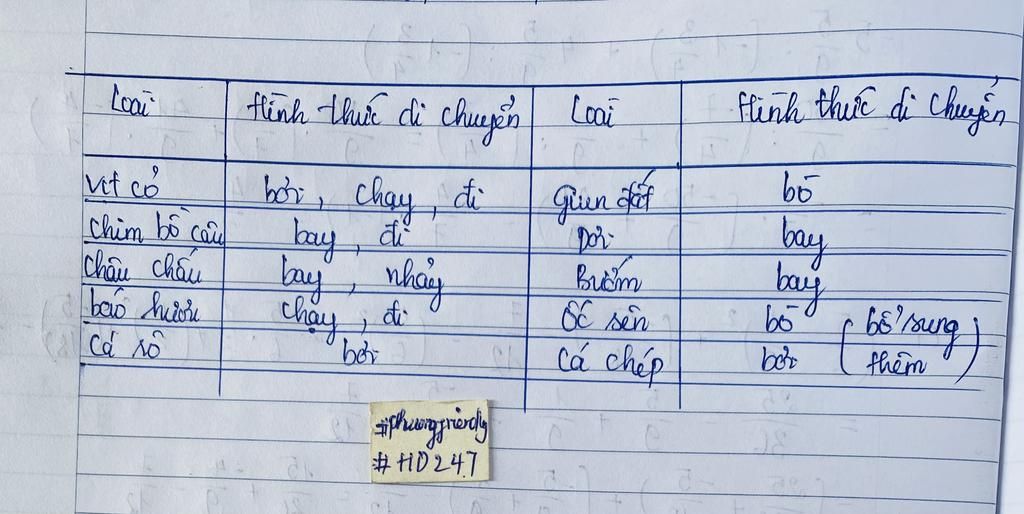 Loài Hình thức di chuyển Loài Hình thức di chuyển
Vịt cỏ bơi, chạy, đi Giun đất bò
Chim bồ câu bay, đi Dơi bay
Châu chấu bay, nhảy Bướm bay
báo hươu chạy, đi Ốc sên bò (bổ sung
Cá sô bơi Cá chép bơi thêm)
#phuongfriendly
#HD247